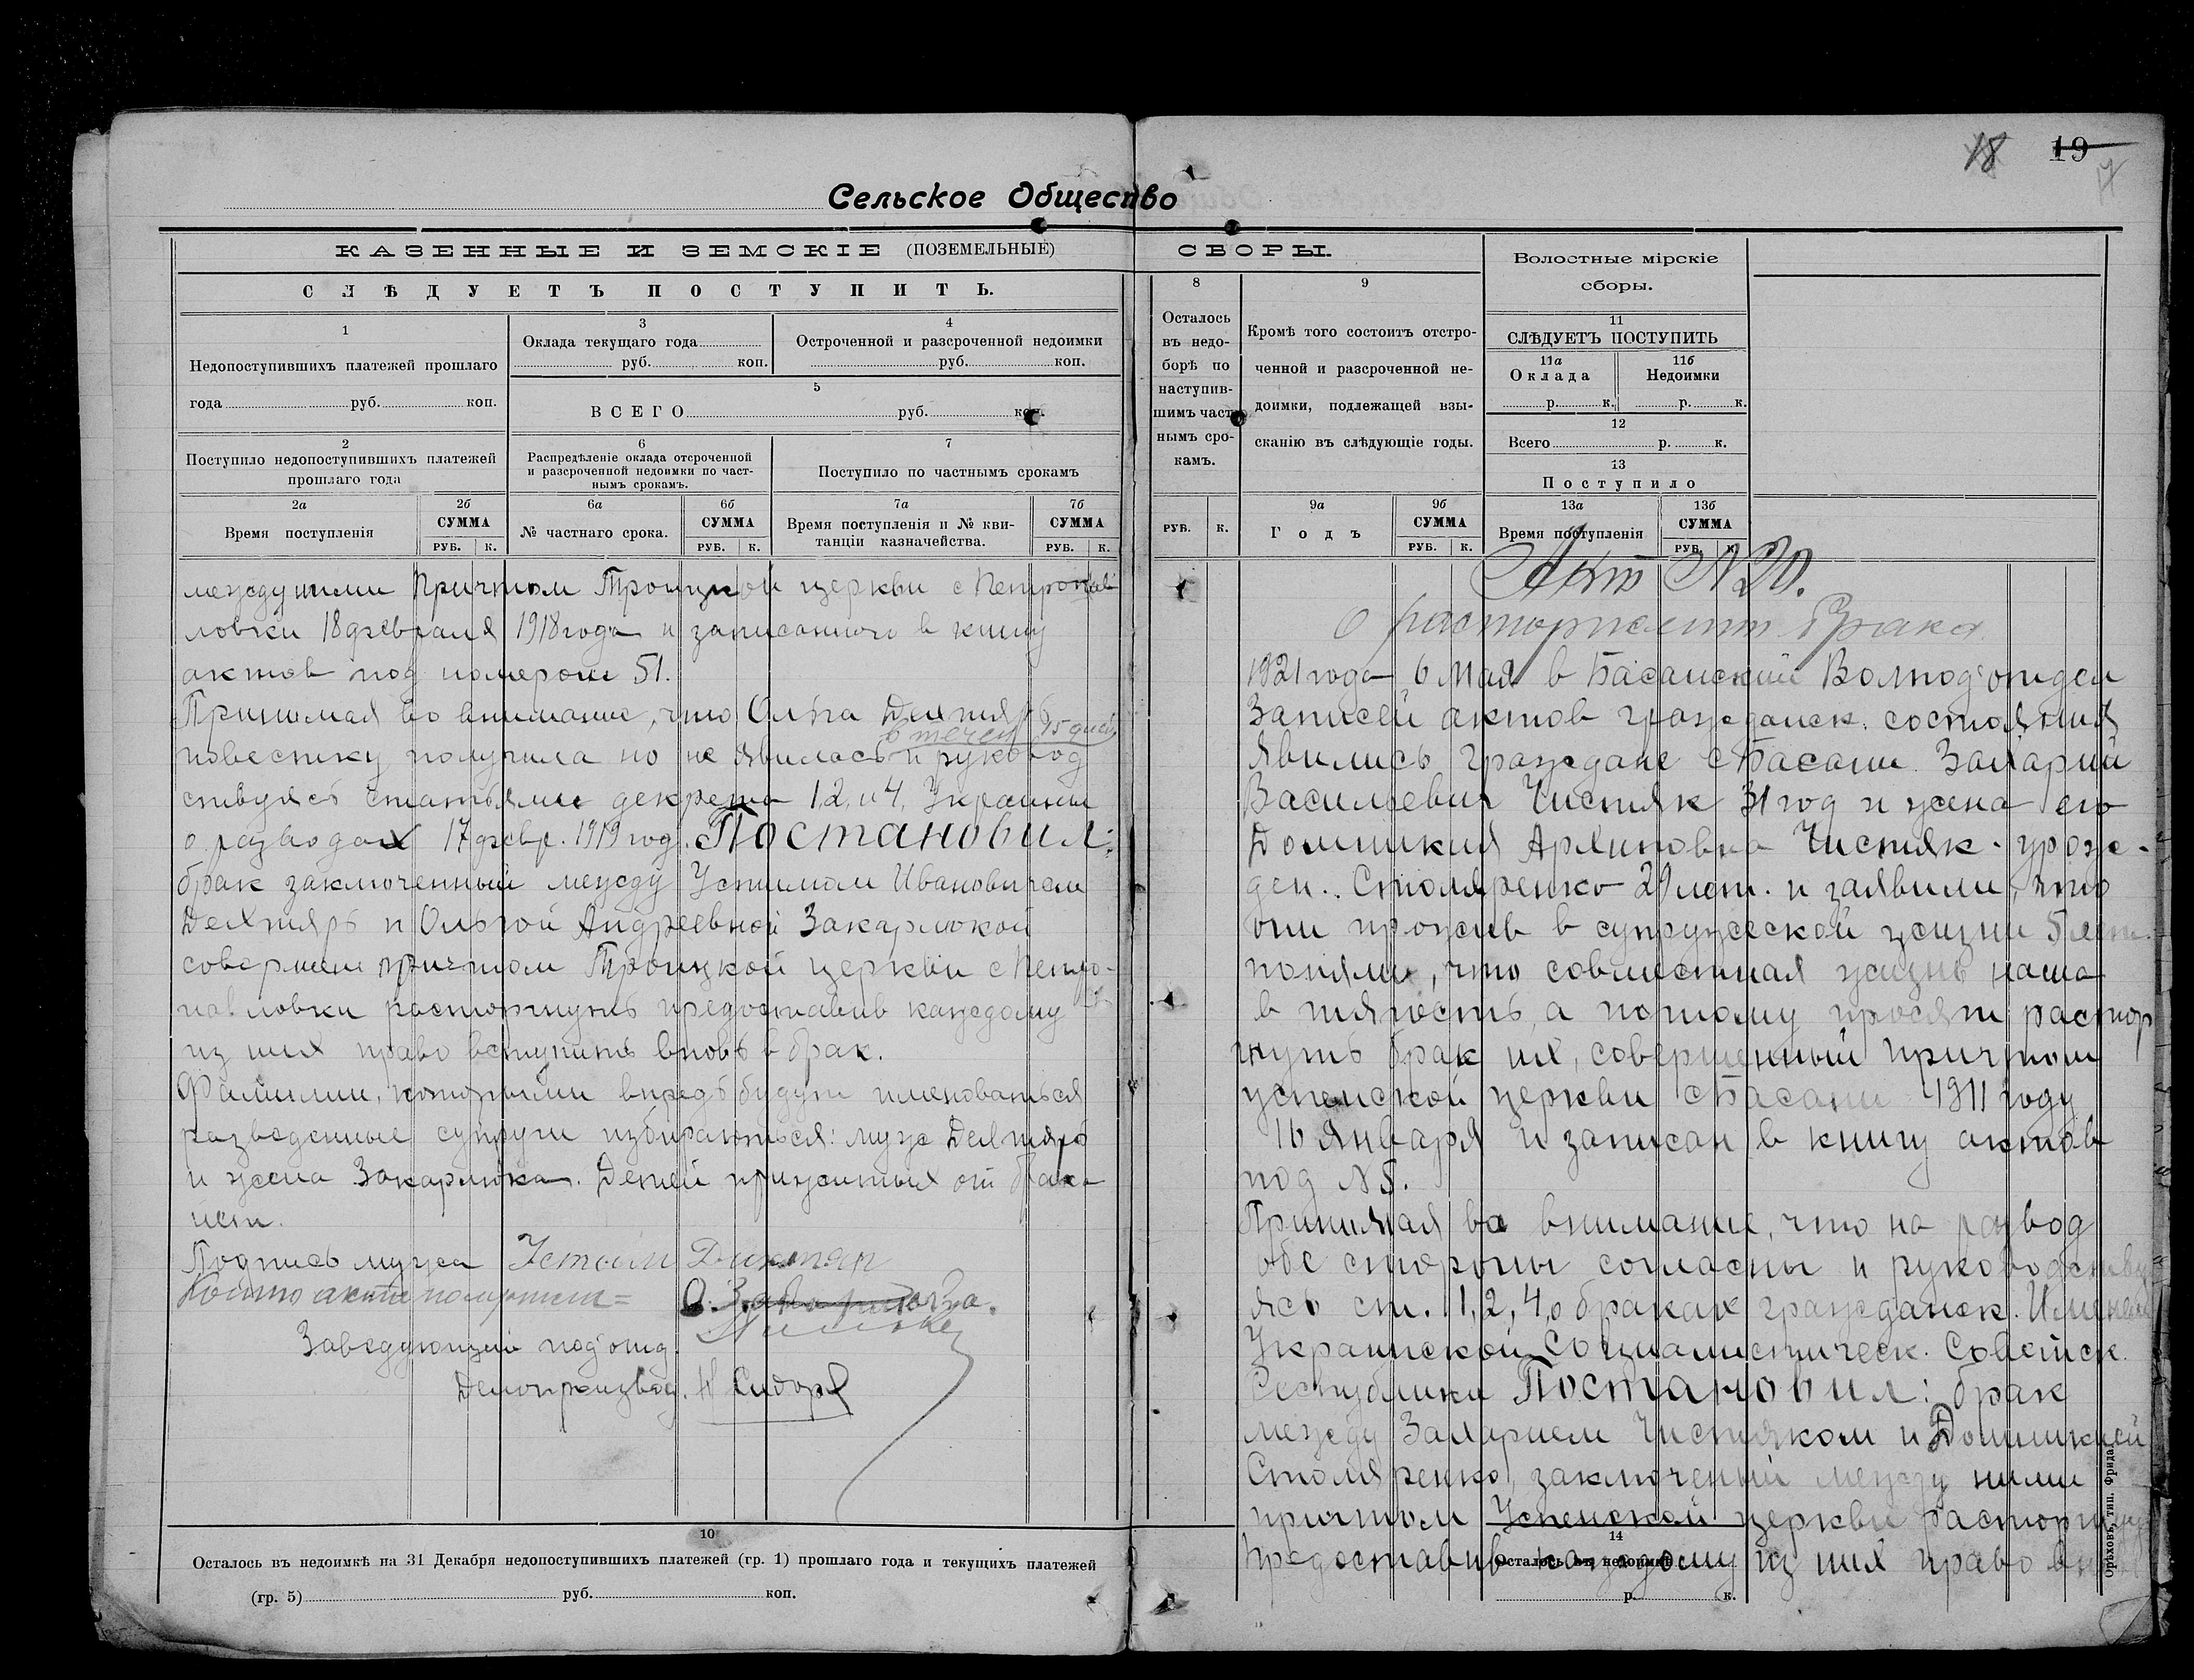 18 19
17
Сельское Общество
КАЗЕННЫЕ И ЗЕМСКІЕ (ПОЗЕМЕЛЬНЫЕ)
СЛѢДУЕТЪ ПОСТУПИТЬ.
1
Недопоступившихъ платежей прошлаго
года руб. коп.
3
Оклада текущаго года
руб. коп.
4
Остроченной и разсроченной недоимки
руб. коп.
5
ВСЕГО руб. коп.
2
Поступило недопоступившихъ платежей
прошлаго года
6
Распредѣленіе оклада отсроченной
и разсроченной недоимки по част-
нымъ срокамъ.
7
Поступило по частнымъ срокамъ
2а
Время поступленія
2б
СУММА
РУБ. К.
6а
№ частнаго срока.
6б
СУММА
РУБ. К.
7а
Время поступленія и № кви-
танціи казначейства.
7б
СУММА
РУБ. К.
между ними Причтом Троицкой церкви с Петропав
ловки 18 февраля 1918 года и записанного в книгу
актов под номером 51.
Принимая во внимание, что Ольга Дехтярь
в течен. 15 дней
повестку получила но не явилась и руковод
ствуясь статьями декрета 1, 2, и 4, Украины
о разводах 17 февр. 1919 год. Постановил:
брак заключенный между Устимом Ивановичем
Дехтярь и Ольгой Андреевной Закарлюкой
совершен причтом Троицкой церкви с Петро-
павловки расторгнуть предоставив каждому
из них право вступить вновь в брак.
Фамилии, которыми впредь будут именоваться
разведенные супруги избираються: муж Дехтярь
и жена Закарлюка. Детей прижитых от брака
нет.
Подпись мужа Устим Дихтяр
Копию акта
Заведующий под'отд.
Делопроизвод. Н Сидор
СБОРЫ.
8
Осталось
въ недо-
борѣ по
наступив-
шимъ част
нымъ сро-
камъ.
РУБ. К.
9
Кромѣ того состоитъ отстро-
ченной и разсроченной не-
доимки, подлежащей взы-
сканію въ слѣдующіе годы.
9а
Годъ
9б
СУММА
РУБ. К.
Волостные мірскіе
сборы.
11
СЛѢДУЕТЪ ПОСТУПИТЬ
11а
Оклада
р. к.
11б
Недоимки
р. к.
12
Всего р. к.
13
Поступило
13а
Время поступленія
13б
СУММА
РУБ. К.
Акт N 20.
О расторжении Брака
1921 года 6 Мая в Басанский Волпод'отдел
Записей актов гражданск. состояния
явились граждане с Басани Захарий
Васильевич Чистяк 31 год и жена его
Домникия Архиповна Чистяк - урож-
ден. Столяренко 29 лет. и заявили, что
они прожив в супружеской жизни 5 лет.
поняли, что совместная жизнь наша
в тягость, а потому просят растор
гнуть брак их, совершенный причтом
успенской церкви с Басани 1911 году
16 Января и записан в книгу актов
под N 5.
Принимая во внимание, что на развод
обе стороны согласны и руководству
ясь ст. 1, 2, 4, о браках гражданск. Именем
Украинской Социалистическ. Советск.
Республики Постановил: брак
между Захарием Чистяком и Домникией
Столяренко, заключеный между ними
причтом Успенской церкви расторгнуть
предоставив каждому из них право
10
Осталось въ недоимкѣ на 31 Декабря недопоступившихъ платежей (гр. 1) прошлаго года и текущихъ платежей
(гр. 5) руб. коп.
14
Осталось въ недоимкѣ
р. к.
Орѣховъ, тип. Фрида.